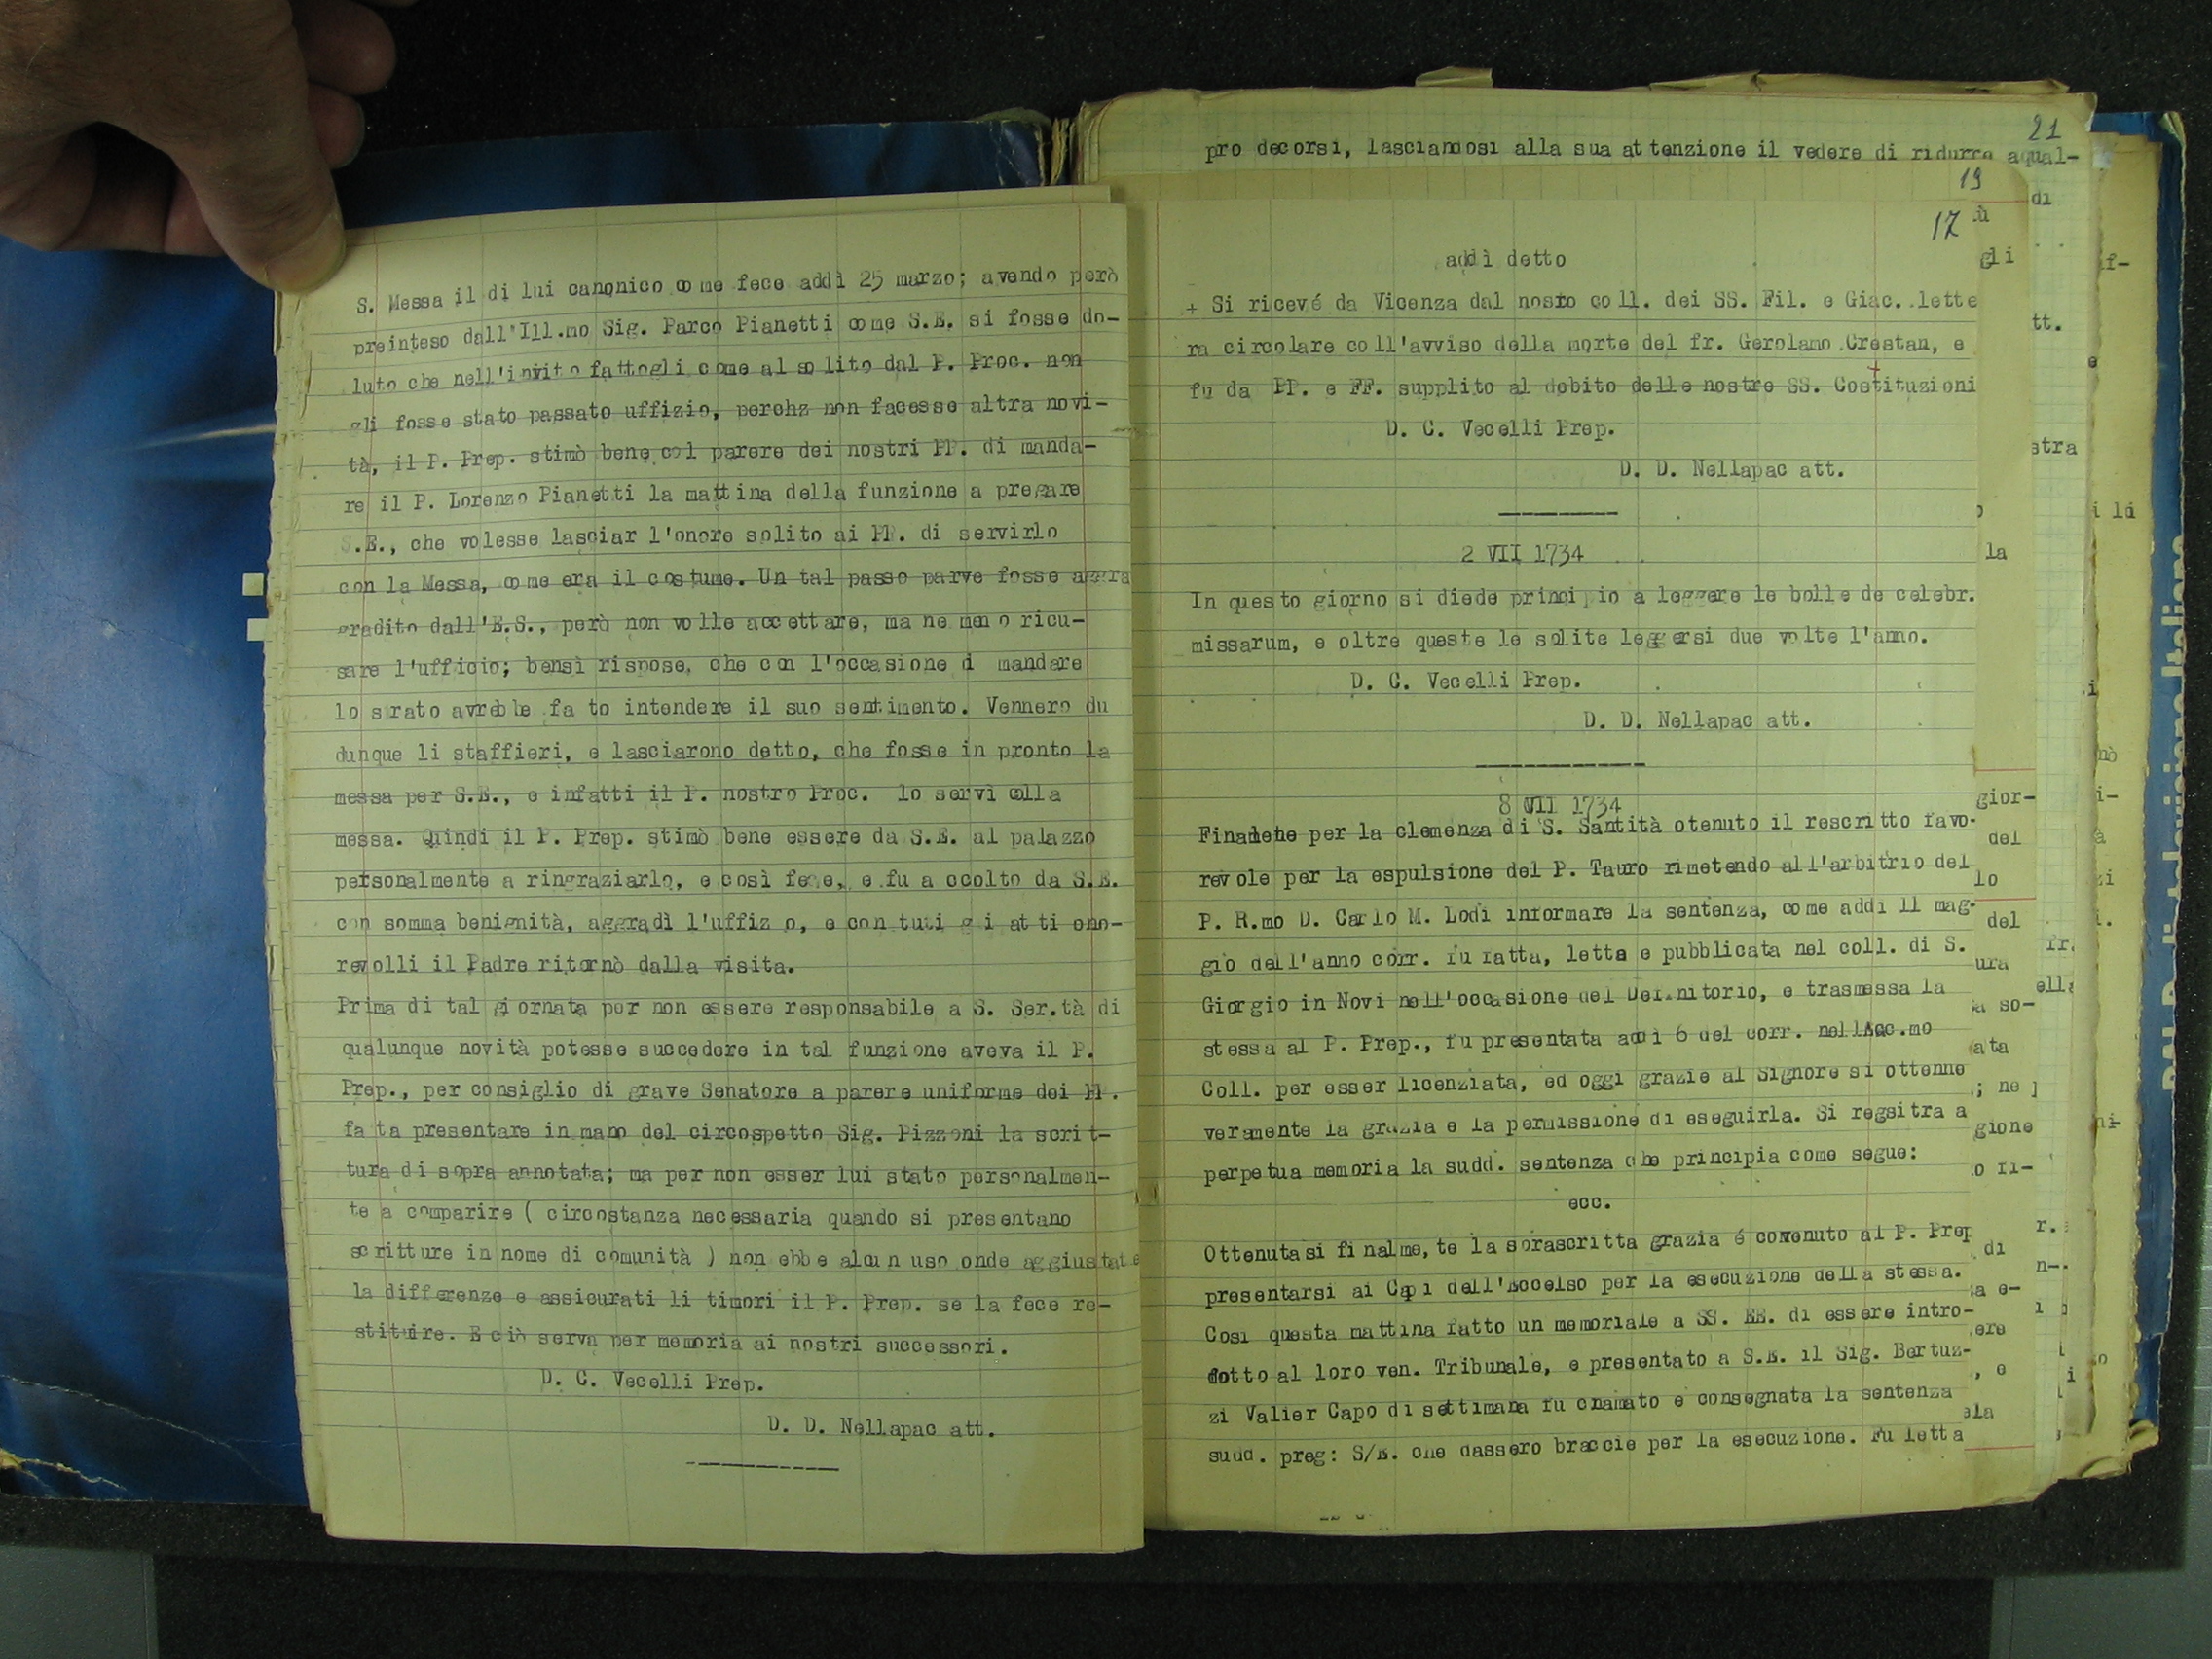 S. Messa il di lui canonico come fece addì 25 marzo; avendo però
preinteso dall'Ill.mo Sig. Parco Pianetti come S.E. si fosse do-
luto che nell'invito fattogli come al solito dal P. Proc. non
gli fosse stato passato uffizio, perchz non facesse altra novi-
tà, il P. Prep. stimò bene col parere dei nostri PP. di manda-
re il P. Lorenzo Pianetti la mattina della funzione a pregare
S.E., che volesse lasciar l'onore solito ai PP. di servirlo
con la Messa, come era il costume. Un tal passo parve fosse aggra
gradito dall'E.S., però non volle accettare, ma ne meno ricu-
sare l'ufficio; bensì rispose, che con l'occasione d mandare
lo srato avrebbe fa to intendere il suo sentimento. Vennero du
dunque li staffieri, e lasciarono detto, che fosse in pronto la
messa per S.E., e infatti il P. nostro Proc. lo servì colla
messa. Quindi il P. Prep. stimò bene essere da S.E. al palazzo
personalmente a ringraziarlo, e così fece, e fu a ccolto da S.E.
con somma benignità, aggradì l'uffiz o, e con tuti g i atti ono-
revolli il Padre ritornò dalla visita.
Prima di tal giornata per non essere responsabile a S. Ser.tà di
qualunque novità potesse succedere in tal funzione aveva il P.
Prep., per consiglio di grave Senatore a parere uniforme dei PP.
fata presentare in mano del circospetto Sig. Pizzoni la scrit-
tura di sopra annotata; ma per non esser lui stato personalmen-
te a comparire ( circostanza necessaria quando si presentano
scritture in nome di comunità ) non ebbe alcun uso onde aggiustate
la differenze e assicurati li timori il P. Prep. se la fece re-
stituire. E ciò serva per memoria ai nostri successori.
D. C. Vecelli Prep.
D. D. Nellapac att.
21
pro decorsi, lasciandosi alla sua attenzione il vedere di ridurre aqual-
19
17
addì detto
+ Si ricevé da Vicenza dal nosto coll. dei SS. Fil. e Giac. lette
ra circolare coll'avviso della morte del fr. Gerolamo Crestan, e
fu da PP. e FF. supplito al debito delle nostre SS. Costituzioni
D. C. Vecelli Prep.
D. D. Nellapac att.
2 VII 1734
In questo giorno si diede principio a leggere le bolle de celebr.
missarum, e oltre queste le solite leggersi due volte l'anno.
D. C. Vecelli Prep.
D. D. Nellapac att.
8 VII 1734
per la clemenza di S. Santità otenuto il rescritto favo-
revole per la espulsione del P. Tauro rimetendo all'arbitrio del
P. R.mo D. Carlo M. Lodi informare la sentenza, come addì 11 mag-
gio dell'anno corr. fu fatta, letta e pubblicata nel coll. di S.
Giorgio in Novi nell'occasione del Definitorio, e trasmessa la
stessa al P. Prep., fu presentata addì 6 del corr. nell'Ecc.mo
Coll. per esser licenziata, ed oggi grazie al Signore si ottenne
veramente la grazia e la permissione di eseguirla. Si regsitra a
perpetua memoria la sudd. sentenza che principia come segue:
ecc.
Ottenutasi finalme,te la sorascritta grazia é convenuto al P. Prep
presentarsi ai Capi dell'Eccelso per la esecuzione della stessa.
Così questa mattina fatto un memoriale a SS. EE. di essere intro-
dotto al loro ven. Tribunale, e presentato a S.E. il Sig. Bertuz-
zi Valier Capo di settimana fu chamato e consegnata la sentenza
sudd. preg: S/E. che dassero braccie per la esecuzione. Fu letta